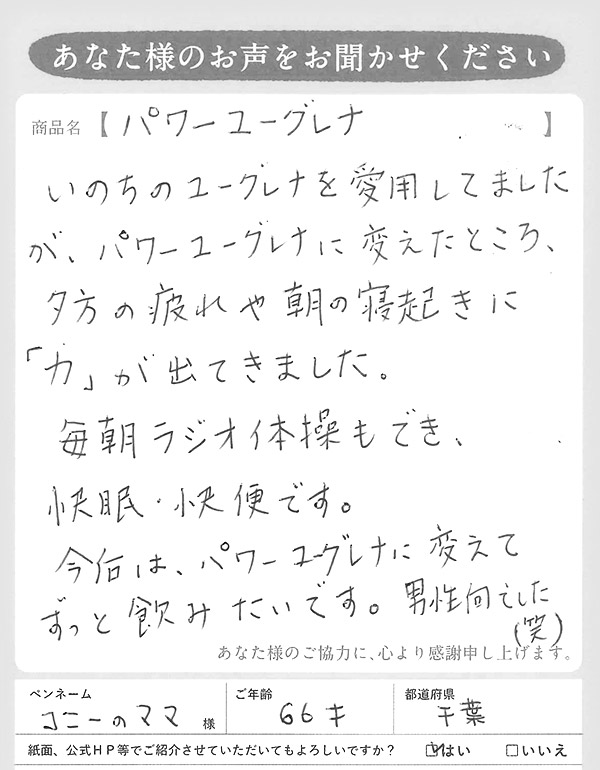 あなた様のお声をお聞かせください
商品名【パワーユーグレナ】
いのちのユーグレナを愛用してました
が、パワーユーグレナに変えたところ、
夕方の疲れや朝の寝起きに
「力」が出てきました。
毎朝ラジオ体操もでき、
快眠・快便です。
今后は、パワーユーグレナに変えて
ずっと飲みたいです。男性向でした
(笑)
あなた様のご協力に、心より感謝申し上げます。
ペンネーム ご年齢 都道府県
コニーのママ 様 66才 千葉
紙面、公式HP等でご紹介させていただいてもよろしいですか? ☑はい □いいえ